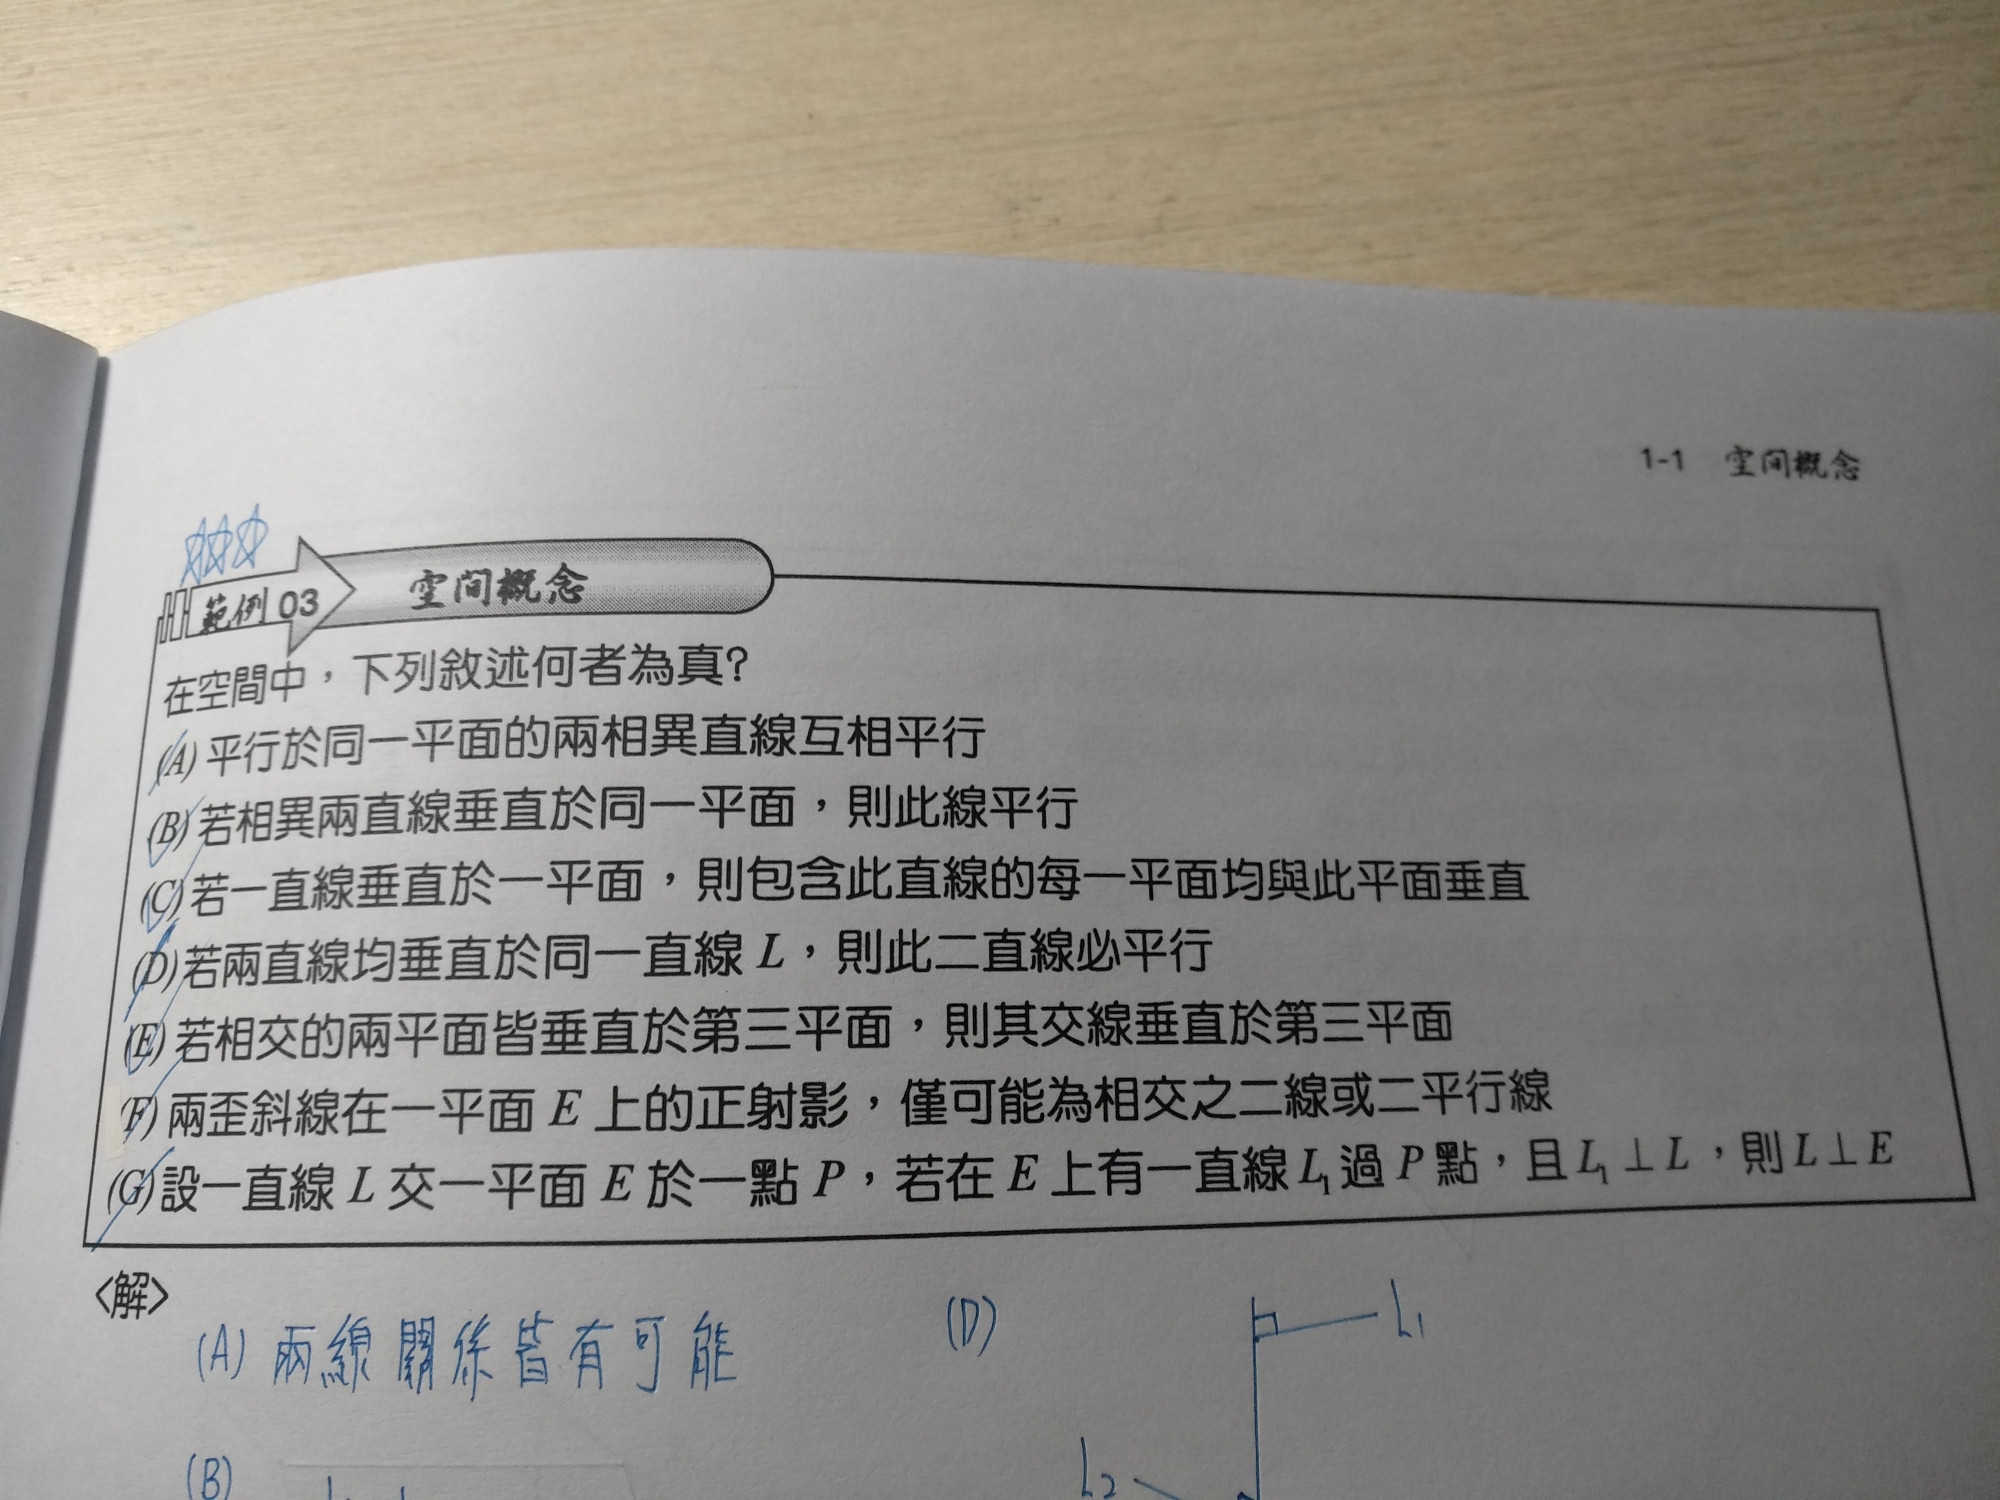 1-1 空間概念
範例 03 空間概念
在空間中，下列敘述何者為真？
(A) 平行於同一平面的兩相異直線互相平行
(B) 若相異兩直線垂直於同一平面，則此線平行
(C) 若一直線垂直於一平面，則包含此直線的每一平面均與此平面垂直
(D) 若兩直線均垂直於同一直線 L，則此二直線必平行
(E) 若相交的兩平面皆垂直於第三平面，則其交線垂直於第三平面
(F) 兩歪斜線在一平面 E 上的正射影，僅可能為相交之二線或二平行線
(G) 設一直線 L 交一平面 E 於一點 P，若在 E 上有一直線 L₁ 過 P 點，且 L₁ ⊥ L，則 L ⊥ E
〈解〉
(A) 兩線關係皆有可能
(D)
L₁
(B)
L₂